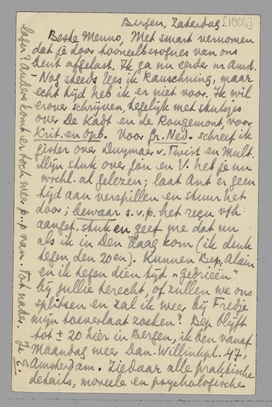 Bergen, Zaterdag [180b]
Beste Menno, Met smart vernomen
dat je door tooneelbesognes van ons
bent afgelast. Ik ga nu eerder nr Amst.
Nog steeds lees ik Rauschning, maar
echt tijd heb ik er niet voor. Ik wil
erover schrijven, tegelijk met stukjes
over De Kadt en De Rougemont, voor
Krit. en Opb. Voor Gr. Ned. schreef ik
gister over Duymaer v. Twist en Mult.
Mijn stuk over Jan en V. heb je nu
wschl. al gelezen; laat Ant er geen
tijd aan verspillen en stuur het
door; bewaar s.v.p. het regu vth
aanget. stuk en geef me dat nu
als ik in Den Haag kom (ik denk
tegen den 20en). Kunnen Bep, Alain
en ik tegen dien tijd
bij jullie terecht, of zullen we ons
splitsen en zal ik weer bij Fredje
mijn toevlaat zoeken? Bep blijft
tot ± 20 hier in Bergen, ik ben vanaf
Maandag weer Dan. Willinkpl. 47,
Amsterdam. Ziedaar alle praktische
details, moreele en psychologische
later? Anders komt er toch meer p..p van. Tot nader. Je E.